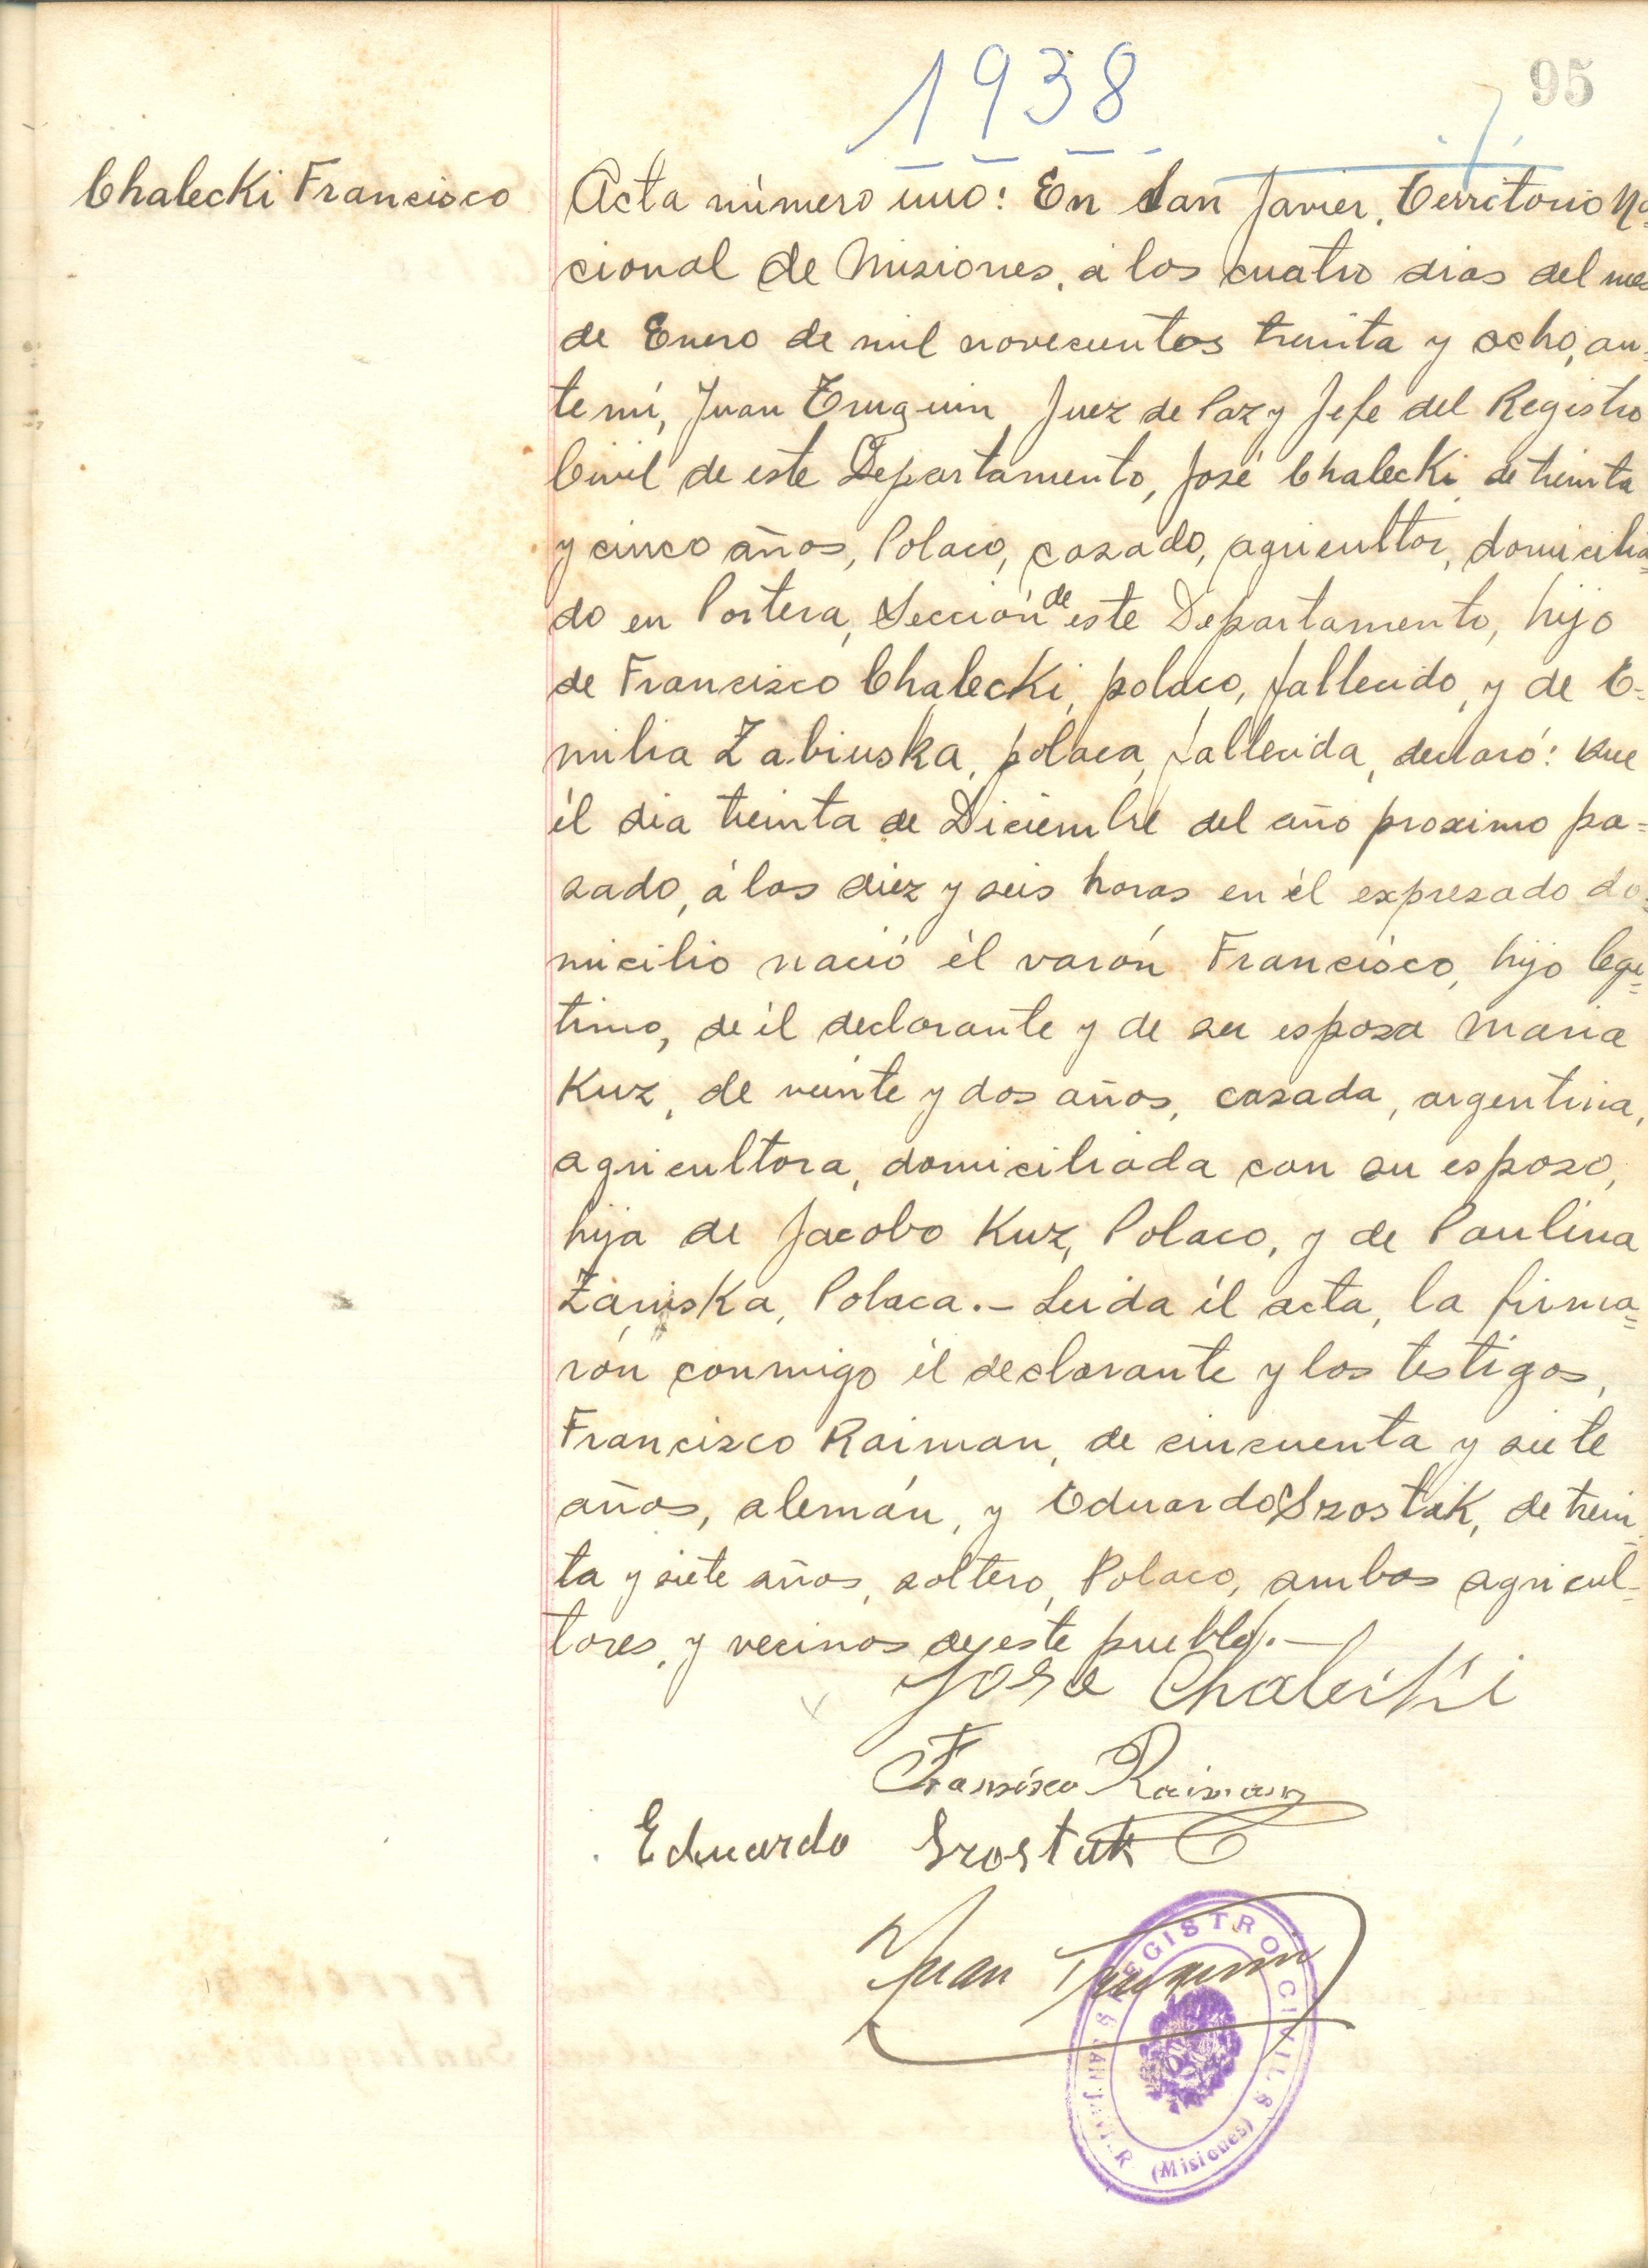 1938
95
Chalecki Francisco
Acta número uno: En San Javier, Territorio Na-
cional de Misiones, a los cuatro dias del mes
de Enero de mil novecientos treinta y ocho, an-
te mí, Juan Truquin Juez de Paz y Jefe del Registro
Civil de este Departamento, José Chalecki de treinta
y cinco años, Polaco, casado, agricultor, domicilia-
do en Portera, Sección de este Departamento, hijo
de Francisco Chalecki, polaco, fallecido, y de E-
milia Zabiuska, polaca, fallecida, declaró: Que
él dia treinta de Diciembre del año proximo pa-
sado, á las diez y seis horas en él expresado do-
micilio nació él varón Francisco, hijo legi-
timo, de él declarante y de su esposa Maria
Kuz, de veinte y dos años, casada, argentina,
agricultora, domiciliada con su esposo,
hija de Jacobo Kuz, Polaco, y de Paulina
Zaniska, Polaca.- Leida él acta, la firma-
rón conmigo él declarante y los testigos,
Francisco Raiman, de cincuenta y siete
años, alemán, y Eduardo Szostak, de trein
ta y siete años, soltero, Polaco, ambos agricul-
tores, y vecinos de este pueblo.-
Jose Chalecki
Francisco Raiman
Eduardo Szostak
Juan Truquin
REGISTRO CIVIL
SAN JAVIER
(Misiones)